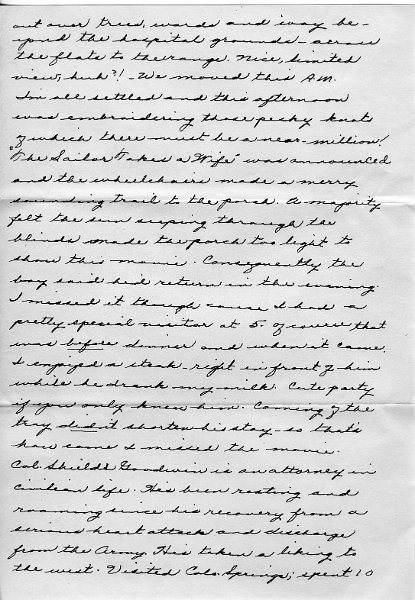 out over trees, wards and away be-
yond the hospital grounds - across
the flats to the range. Nice, limited
view, huh?! - We moved this A.M.
I'm all settled and this afternoon
was embroidering those pesky knots
of which there must be a near-million!
"The Sailor Takes a Wife" was announced
and the wheelchairs made a merry
sounding trail to the porch. A majority
felt the sun seeping through the
blinds made the porch too light to
show this movie. Consequently the
boy said he'd return in the evening.
I missed it though - cause I had a
pretty special visitor at 5. Of course that
was before dinner and when it came,
I enjoyed a steak - right in front of him
while he drank my milk. Cute party
if you only knew him. Coming of the
tray didn't shorten his stay - so that's
how come I missed the movie.
Col. Shields Goodwin is an attorney in
civilian life. He's been resting and
roaming since his recovery from a
serious heart attack and discharge
from the Army. He's taken a liking to
the west. Visited Colo. Springs; spent 10